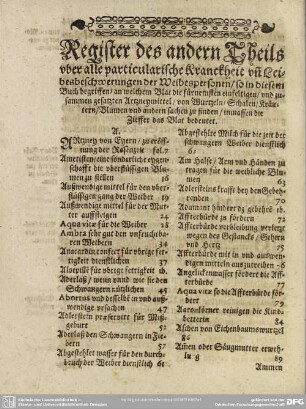 Register des andern Theils
vber alle particularische Kranckheit vñ Lei-
besbeschwerungen der Weibespersonen / so in diesem
Buch begriffen / an welchem Blat die fürnemsten einfeltigen / vnd zu-
sammen gesatzten Artzneymittel / von Wurtzeln / Schalen / Kräu-
tern / Blumen vnd andern sachen zu finden / inmassen die
Zieffer das Blat bedeutet.
A.
Artzney von Eyern / zu eröff-
nung der
Ametisten / eine sonderliche eygen-
schafft die vberflüssigen Blu-
men zu stillen 16
Außwendige mittel für den vber-
flüssigen gang der Weiber 19
Außwendige mittel für der Mut-
ter auffsteigen 24
Aqua vitæ für die Weiber 28
Ambra sehr gut den vnfruchtba-
ren Weibern 34
Anacardin confect für vbrige fet-
tigkeit dienstlichen 37
Aloepille für vbrige fettigkeit ib.
Aderlaß / wenn vnd wie sie den
Schwangern nützlichen 45
Abortus vnd desselb in vnd auß-
wendige vrsachen 47
Aderstein præseruatiff für Miß-
geburt 52
Aderlaß den Schwangern in Fie-
bern 57
Abgestehlet wasser für den durch-
bruch der Weiber dienstlich 61
Abgestehlte Milch für die zeit der
schwangern Weiber dienstlich
62
Am Halse / Arm vnd Händen zu
tragen für die weibliche Blu-
men 63
Adlersteins krafft bey den Gebeh-
renden 70
Adamant hindert dz gibehrẽ ib.
Affterbürde zu fördern 72
Affterbürde verbleibung verletzt
wegen des Gestancks / Gehirn
vnd Hertz 75
Affterbürde mit in vnd außwen-
digen mitteln auszutreiben 76
Angelickenwasser födert die Aff-
terbürde 77
Aqua vitæ so die Affterbürde för-
dert 79
kräuelbörner reinigen die Kind-
betterin 84
Aschen von Eichenbaumswurtzel
86
Amen oder Säugmutter erweh-
lu 8 89
Ammen